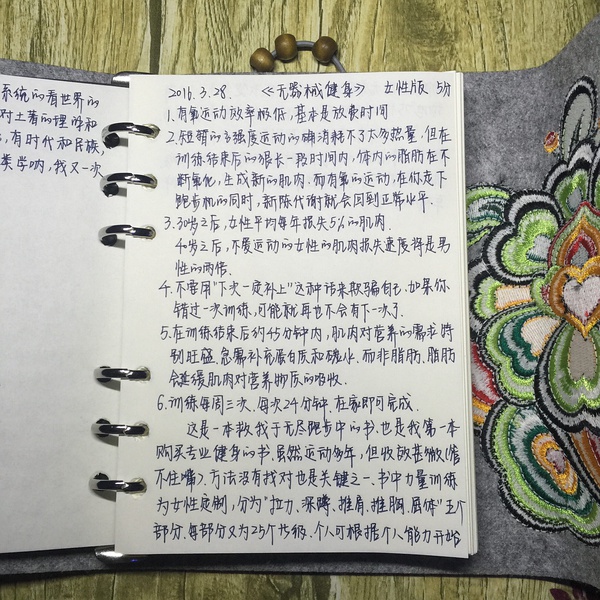 系统的看世界的
对土著的理解和
,有时代和民族,
类学呐,我又一次
2016.3.28. 《无器械健身》 女性版 5分
1.有氧运动效率极低,基本是浪费时间
2.短暂的高强度运动的确消耗不了太多热量,但在
训练结束后的很长一段时间内,体内的脂肪在不
断氧化,生成新的肌肉.而有氧的运动,在你走下
跑步机的同时,新陈代谢就会回到正常水平.
3.30岁之后,女性平均每年损失5%的肌肉.
40岁之后,不爱运动的女性的肌肉损失速度将是男
性的两倍.
4.不要用"下次一定补上"这种话来欺骗自己.如果你
错过一次训练,可能就再也不会有下一次了.
5.在训练结束后约45分钟内,肌肉对营养的需求特
别旺盛.急需补充蛋白质和碳水.而非脂肪.脂肪
会延缓肌肉对营养物质的吸收.
6.训练每周三次.每次24分钟.在家即可完成.
这是一本救我于无尽跑步中的书.也是我第一本
购买专业健身的书.虽然运动多年,但收效甚微(管
不住嘴).方法没有找对也是关键之一.书中力量训练
为女性定制,分为"拉力、深蹲、推肩、推胸、屈体"五个
部分.每部分又为25个阶级.个人可根据个人能力开始